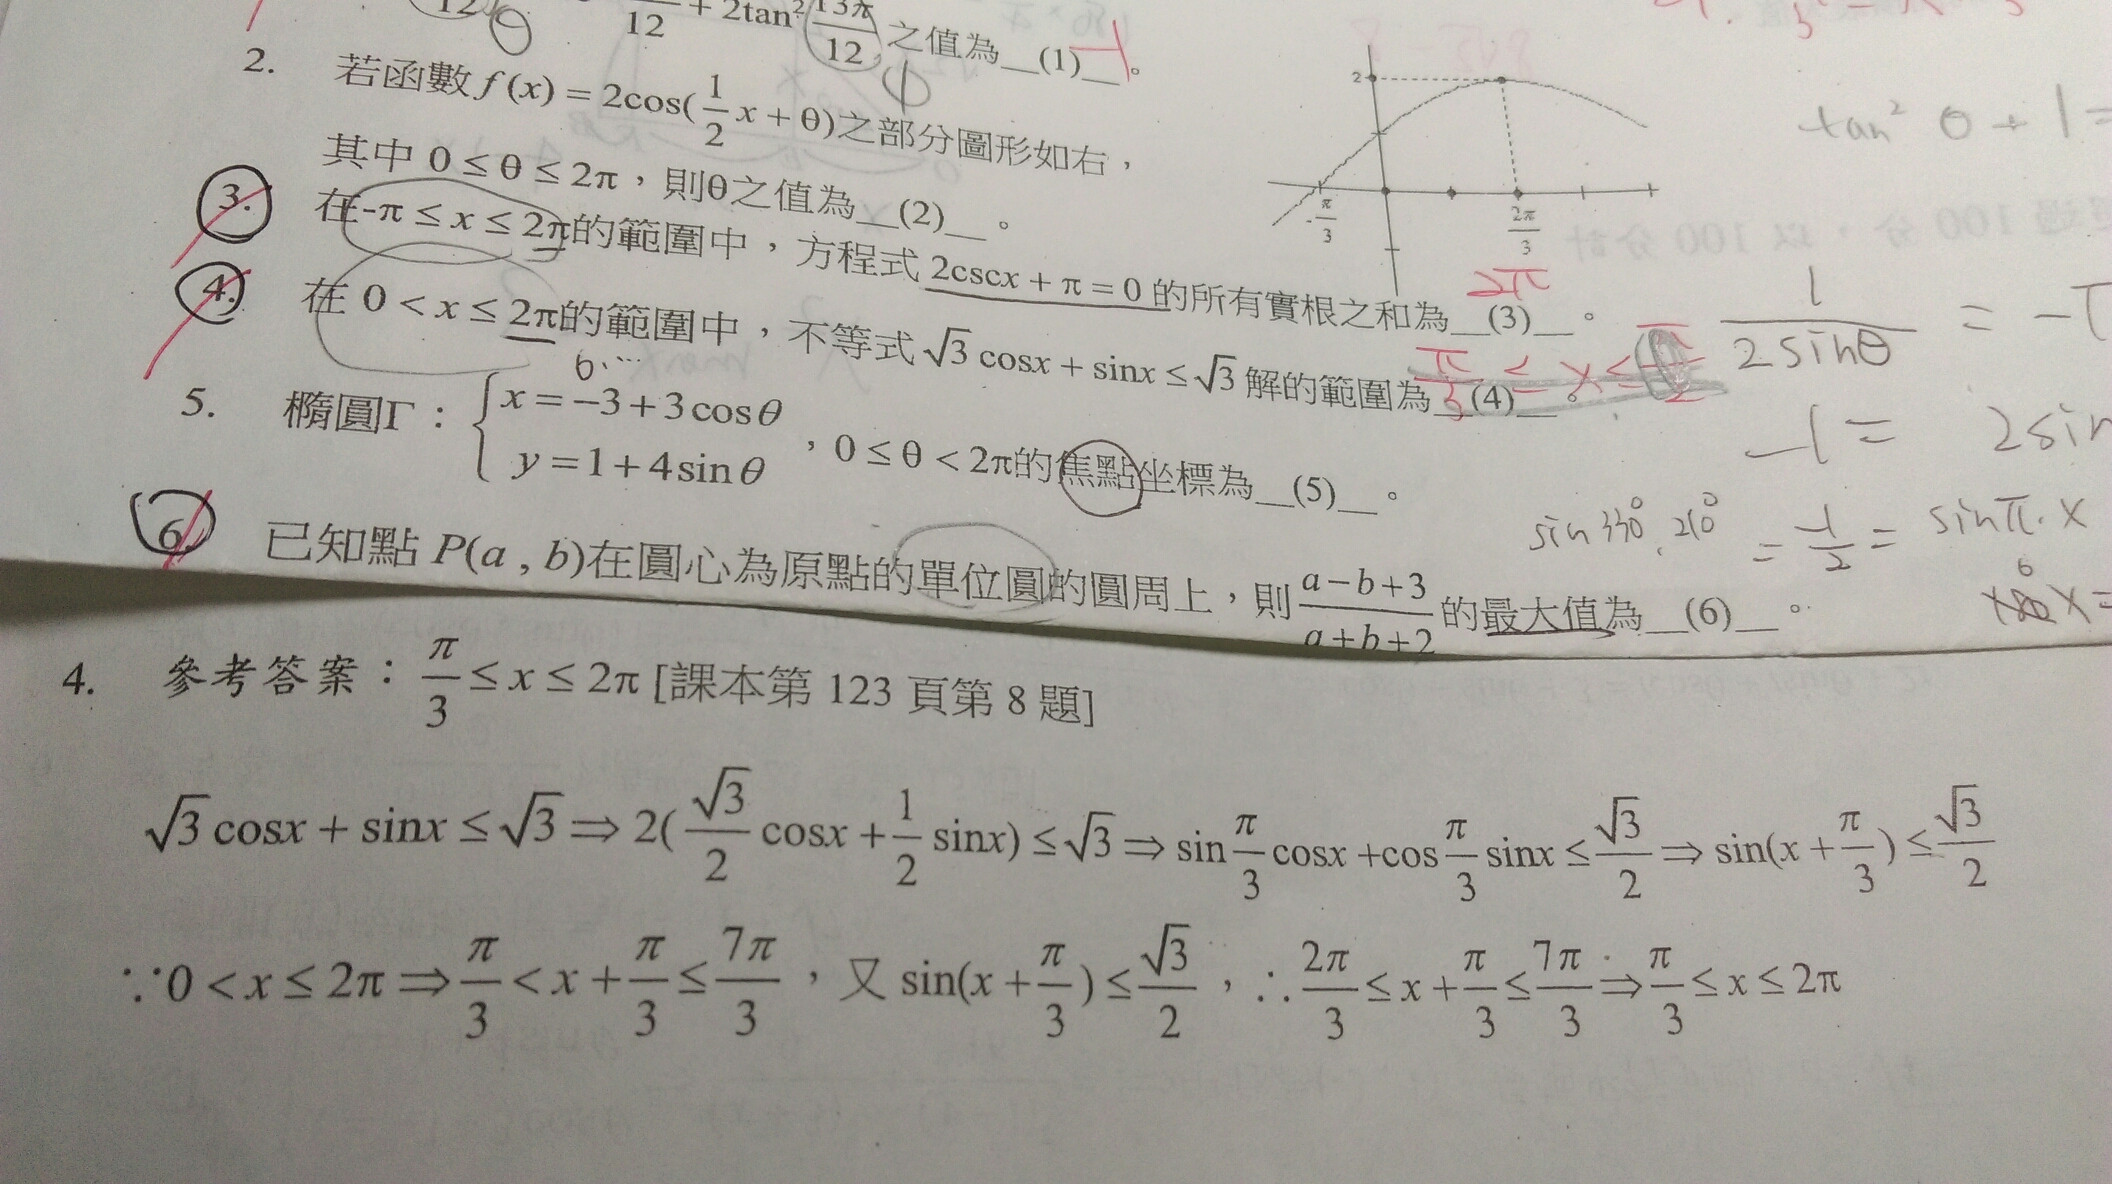 12 θ 12 + 2tan² 13π/12 之值為__(1)__。 -1
2. 若函數 f(x) = 2cos(1/2 x + θ)之部分圖形如右，
其中 0 ≤ θ ≤ 2π，則θ之值為__(2)__。
2
-π/3 2π/3
3. 在-π ≤ x ≤ 2π的範圍中，方程式 2cscx + π = 0 的所有實根之和為__(3)__。 2π
4. 在 0 < x ≤ 2π的範圍中，不等式 √3 cosx + sinx ≤ √3 解的範圍為__(4)__。 π/3 ≤ x ≤
6...
5. 橢圓Γ： { x = -3 + 3cosθ
y = 1 + 4sinθ ，0 ≤ θ < 2π的焦點坐標為__(5)__。
6. 已知點 P(a , b)在圓心為原點的單位圓的圓周上，則 a-b+3/a+b+2 的最大值為__(6)__。
tan² θ + 1 =
超過 100 分，以 100 分計
1/2sinθ = -π
-1 = 2sin
sin330°, 210° = -1/2 = sinπ·x
6
x =
4. 參考答案：π/3 ≤ x ≤ 2π [課本第 123 頁第 8 題]
√3 cosx + sinx ≤ √3 ⇒ 2(√3/2 cosx + 1/2 sinx) ≤ √3 ⇒ sin π/3 cosx + cos π/3 sinx ≤ √3/2 ⇒ sin(x + π/3) ≤ √3/2
∵ 0 < x ≤ 2π ⇒ π/3 < x + π/3 ≤ 7π/3，又 sin(x + π/3) ≤ √3/2，∴ 2π/3 ≤ x + π/3 ≤ 7π/3 ⇒ π/3 ≤ x ≤ 2π